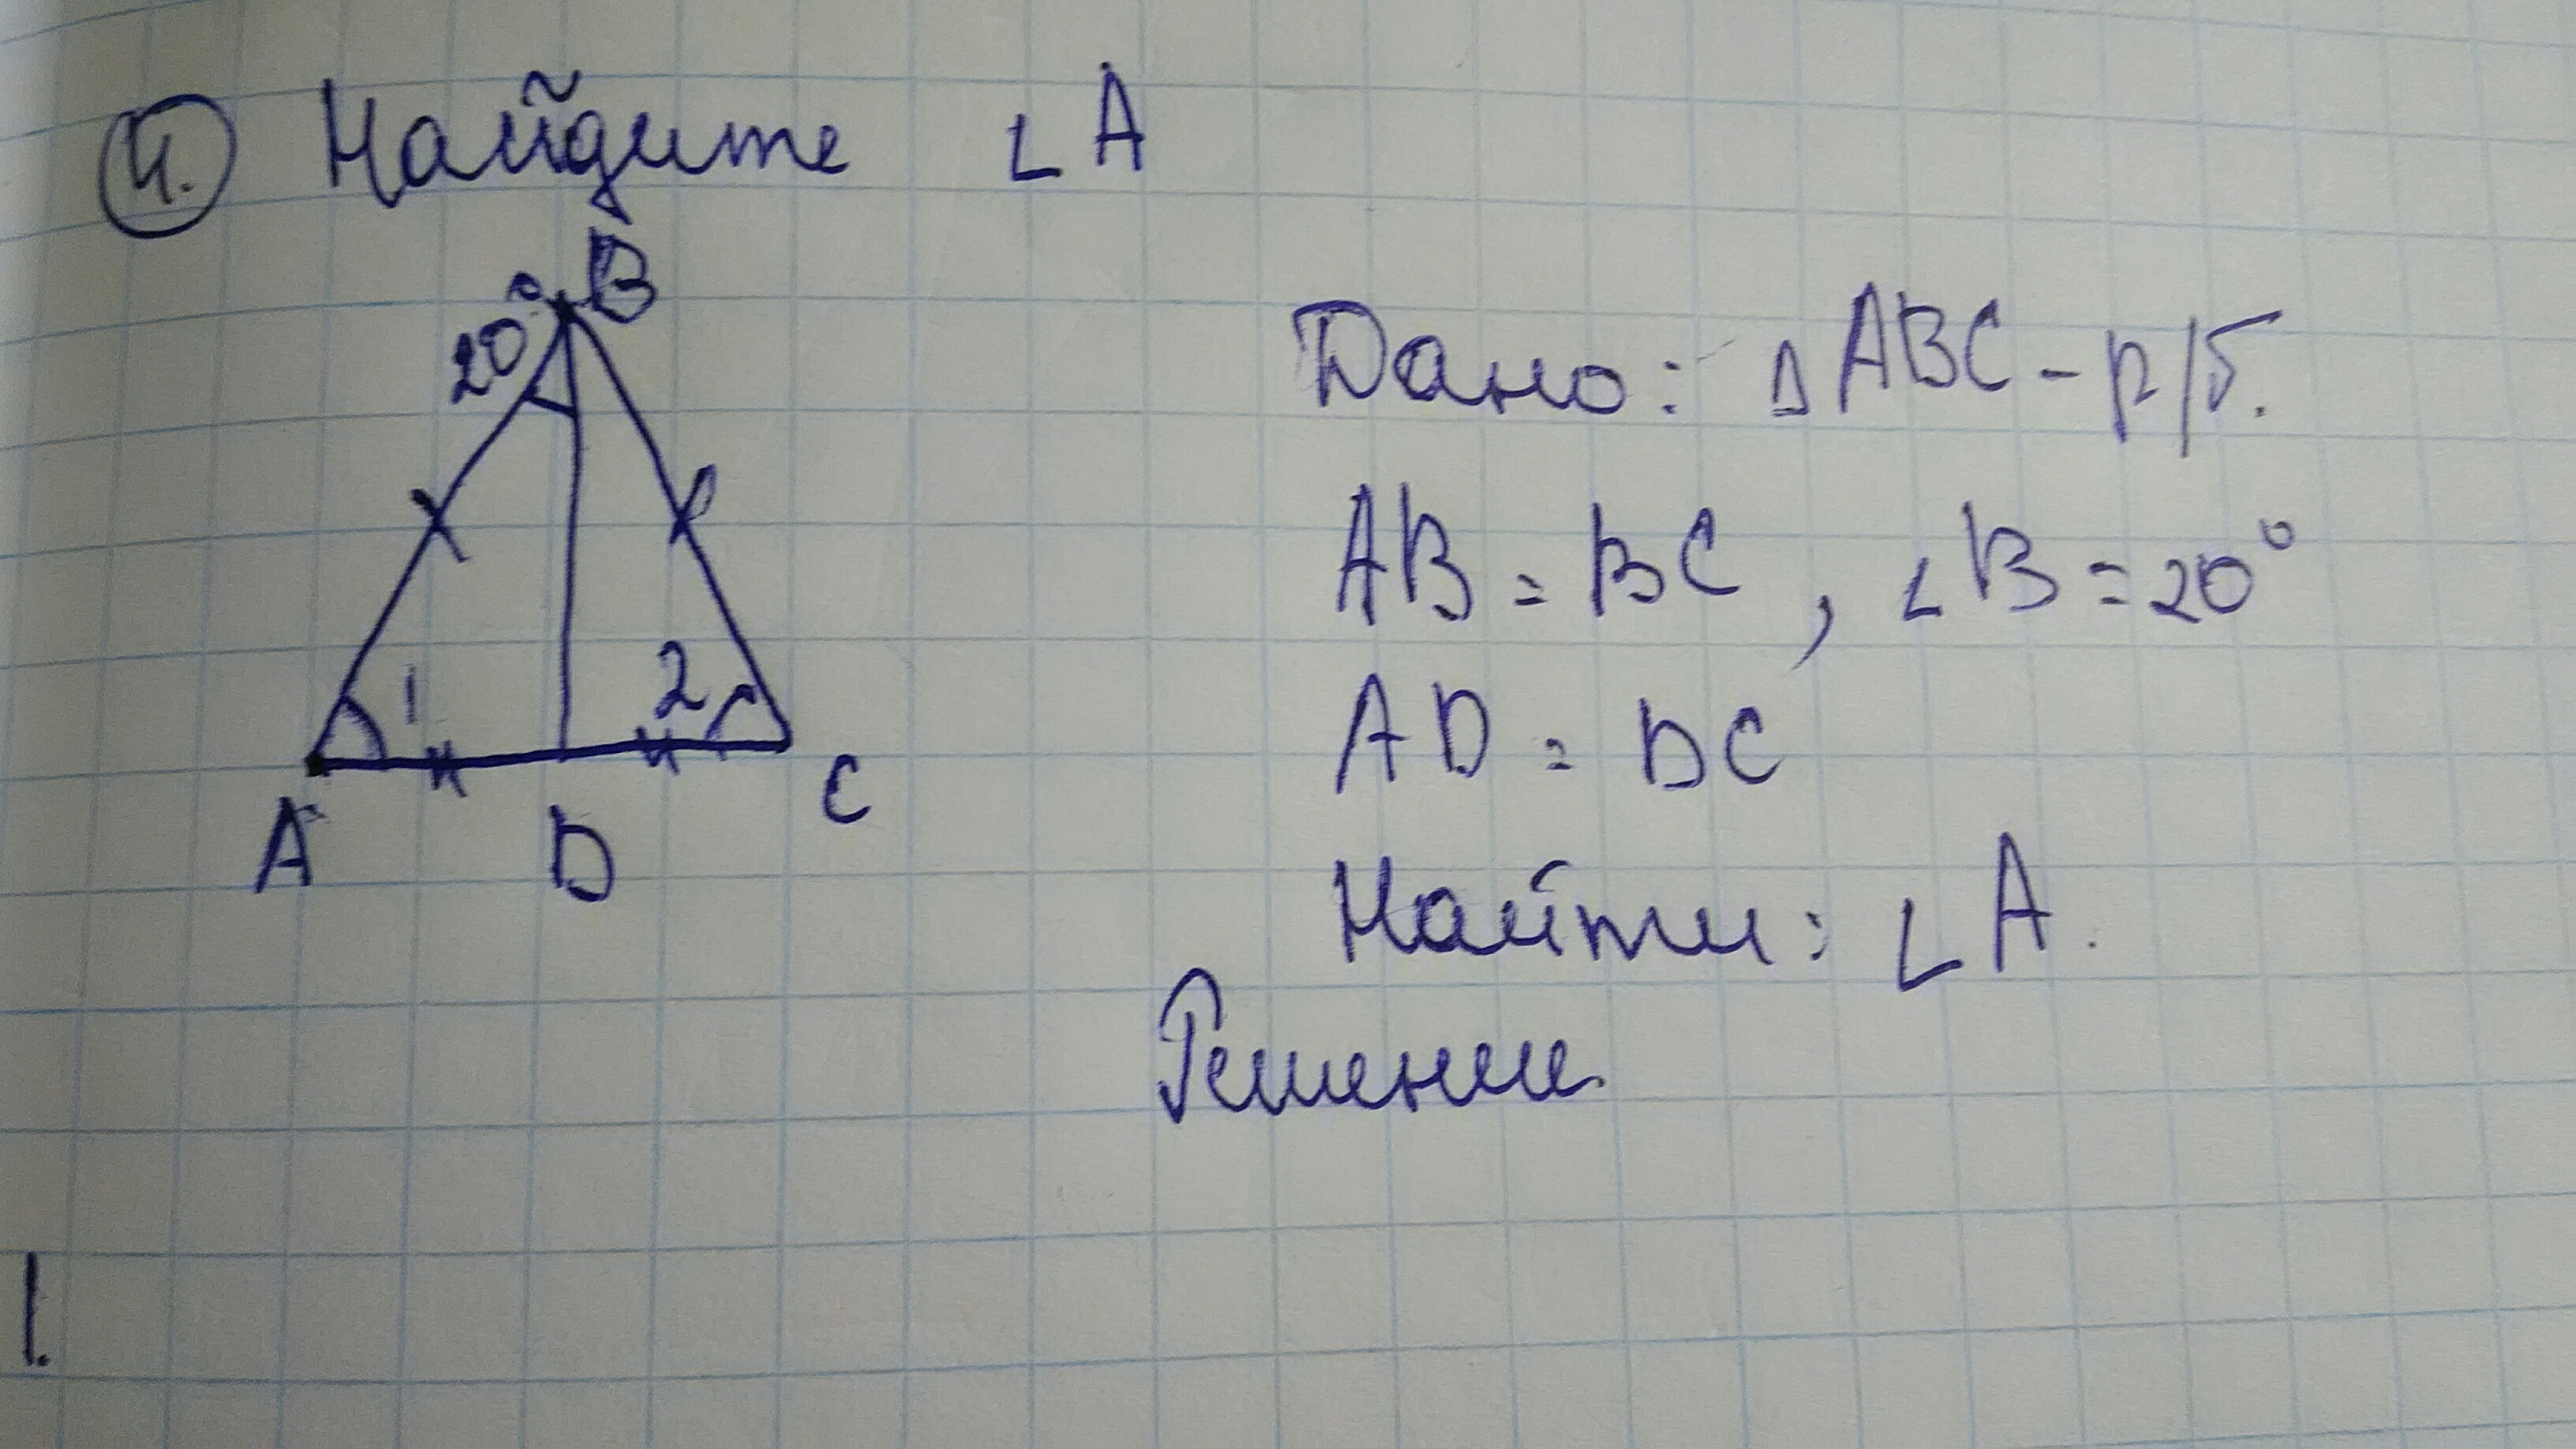 4. Найдите ∠A
B
20°
1
2
A
D
C
Дано: ΔABC - р/б.
AB = BC, ∠B = 20°
AD = DC
Найти: ∠A.
Решение.
1.